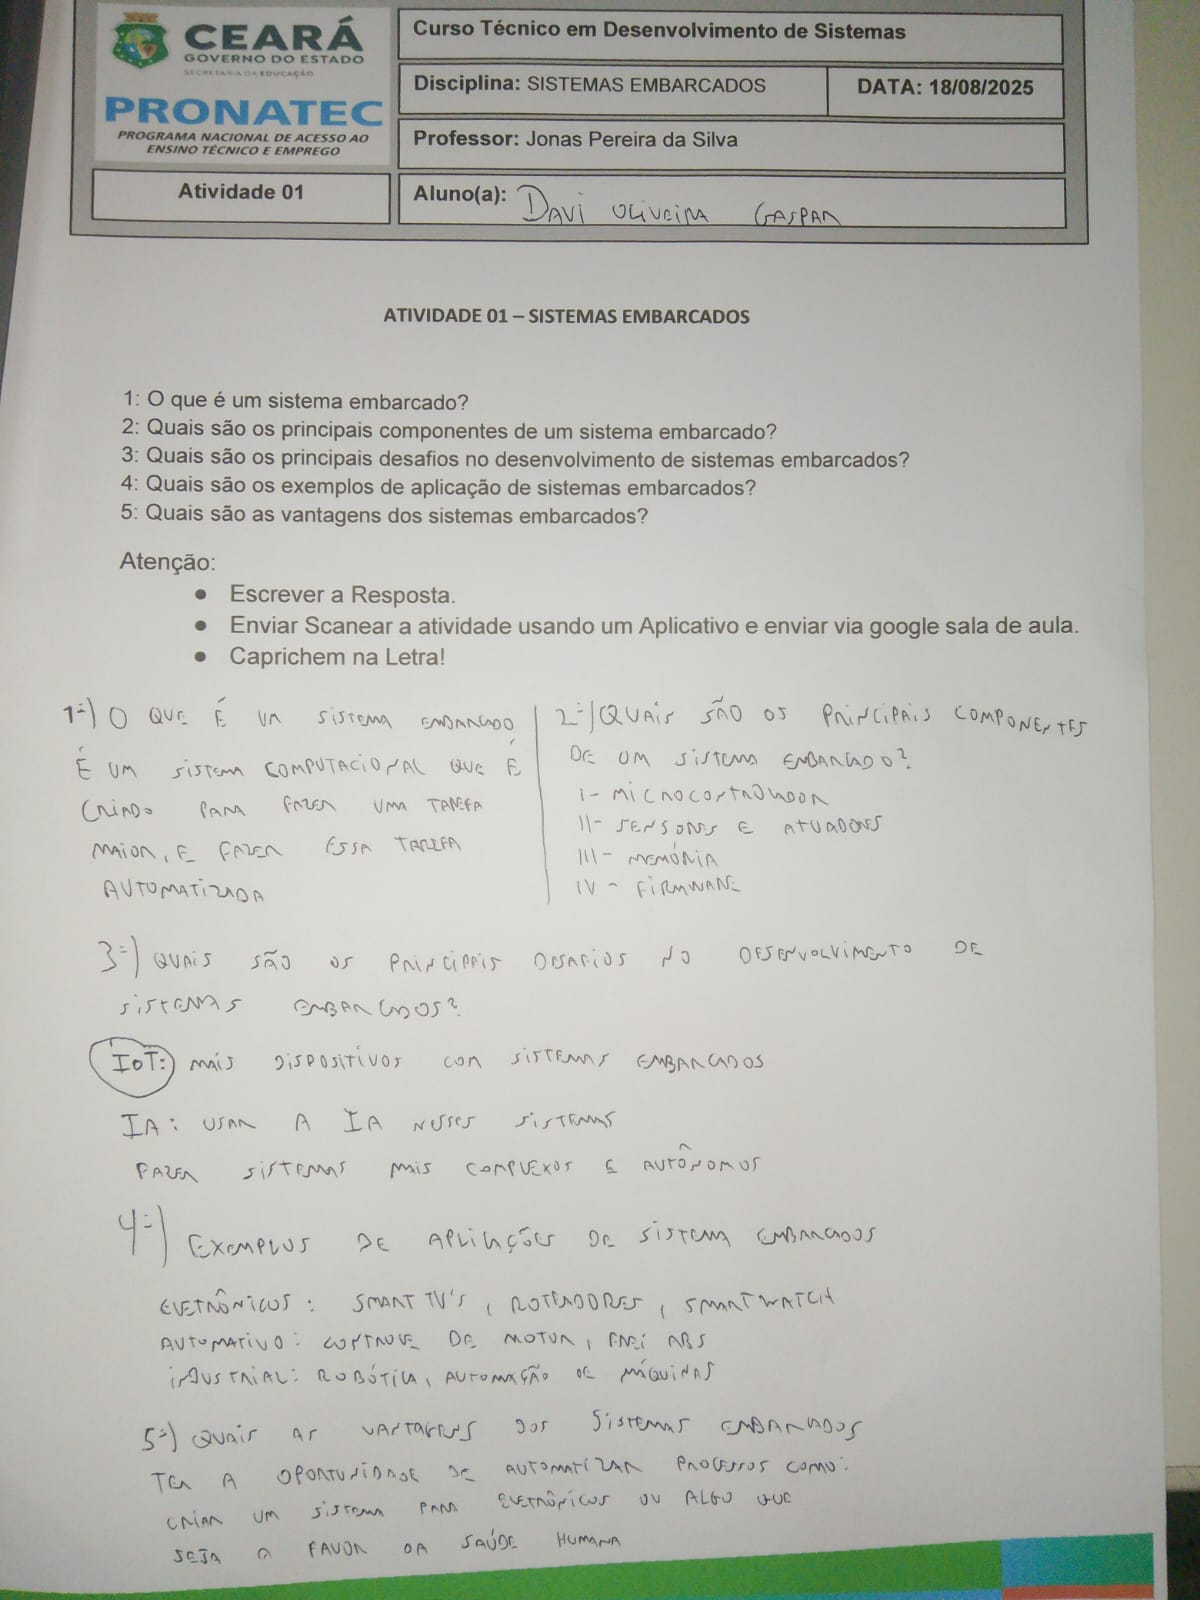 CEARÁ
GOVERNO DO ESTADO
SECRETARIA DA EDUCAÇÃO
PRONATEC
PROGRAMA NACIONAL DE ACESSO AO
ENSINO TÉCNICO E EMPREGO
Atividade 01
Curso Técnico em Desenvolvimento de Sistemas
Disciplina: SISTEMAS EMBARCADOS
DATA: 18/08/2025
Professor: Jonas Pereira da Silva
Aluno(a): DAVI OLIVEIRA GASPAR
ATIVIDADE 01 – SISTEMAS EMBARCADOS
1: O que é um sistema embarcado?
2: Quais são os principais componentes de um sistema embarcado?
3: Quais são os principais desafios no desenvolvimento de sistemas embarcados?
4: Quais são os exemplos de aplicação de sistemas embarcados?
5: Quais são as vantagens dos sistemas embarcados?
Atenção:
● Escrever a Resposta.
● Enviar Scanear a atividade usando um Aplicativo e enviar via google sala de aula.
● Caprichem na Letra!
1=) O QUE É UM SISTEMA EMBARCADO
É UM SISTEMA COMPUTACIONAL QUE É
CRIADO PARA FAZER UMA TAREFA
MAIOR, E FAZER ESSA TAREFA
AUTOMATIZADA
2=) QUAIS SÃO OS PRINCIPAIS COMPONENTES
DE UM SISTEMA EMBARCADO?
I- MICROCONTROLADOR
II- SENSORES E ATUADORES
III- MEMÓRIA
IV- FIRMWARE
3=) QUAIS SÃO OS PRINCIPAIS DESAFIOS NO DESENVOLVIMENTO DE
SISTEMAS EMBARCADOS?
IOT: MAIS DISPOSITIVOS COM SISTEMAS EMBARCADOS
IA: USAR A IA NESSES SISTEMAS
FAZER SISTEMAS MAIS COMPLEXOS E AUTÔNOMOS
4=) EXEMPLOS DE APLICAÇÕES DE SISTEMA EMBARCADOS
ELETRÔNICOS: SMART TV'S, ROTEADORES, SMARTWATCH
AUTOMATIVO: CONTROLE DE MOTOR, FREI ABS
INDUSTRIAL: ROBÓTICA, AUTOMAÇÃO DE MÁQUINAS
5=) QUAIS AS VANTAGENS DOS SISTEMAS EMBARCADOS
TER A OPORTUNIDADE DE AUTOMATIZAR PROCESSOS COMO:
CRIAR UM SISTEMA PARA ELETRÔNICOS OU ALGO QUE
SEJA A FAVOR DA SAÚDE HUMANA